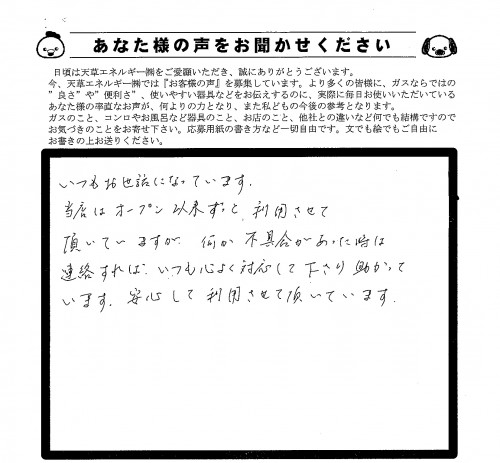 あなた様の声をお聞かせください
日頃は天草エネルギー㈱をご愛顧いただき、誠にありがとうございます。
今、天草エネルギー㈱では『お客様の声』を募集しています。より多くの皆様に、ガスならではの
”良さ”や”便利さ”、使いやすい器具などをお伝えするのに、実際に毎日お使いいただいている
あなた様の率直なお声が、何よりの力となり、また私どもの今後の参考となります。
ガスのこと、コンロやお風呂など器具のこと、お店のこと、他社との違いなど何でも結構ですので
お気づきのことをお寄せ下さい。応募用紙の書き方など一切自由です。文でも絵でもご自由に
お書きの上お送りください。
いつもお世話になっています.
当店は オープン以来ずっと 利用させて
頂いていますが 何か不具合があった時は
連絡すれば いつも心よく対応して下さり 助かって
います. 安心して利用させて頂いています.